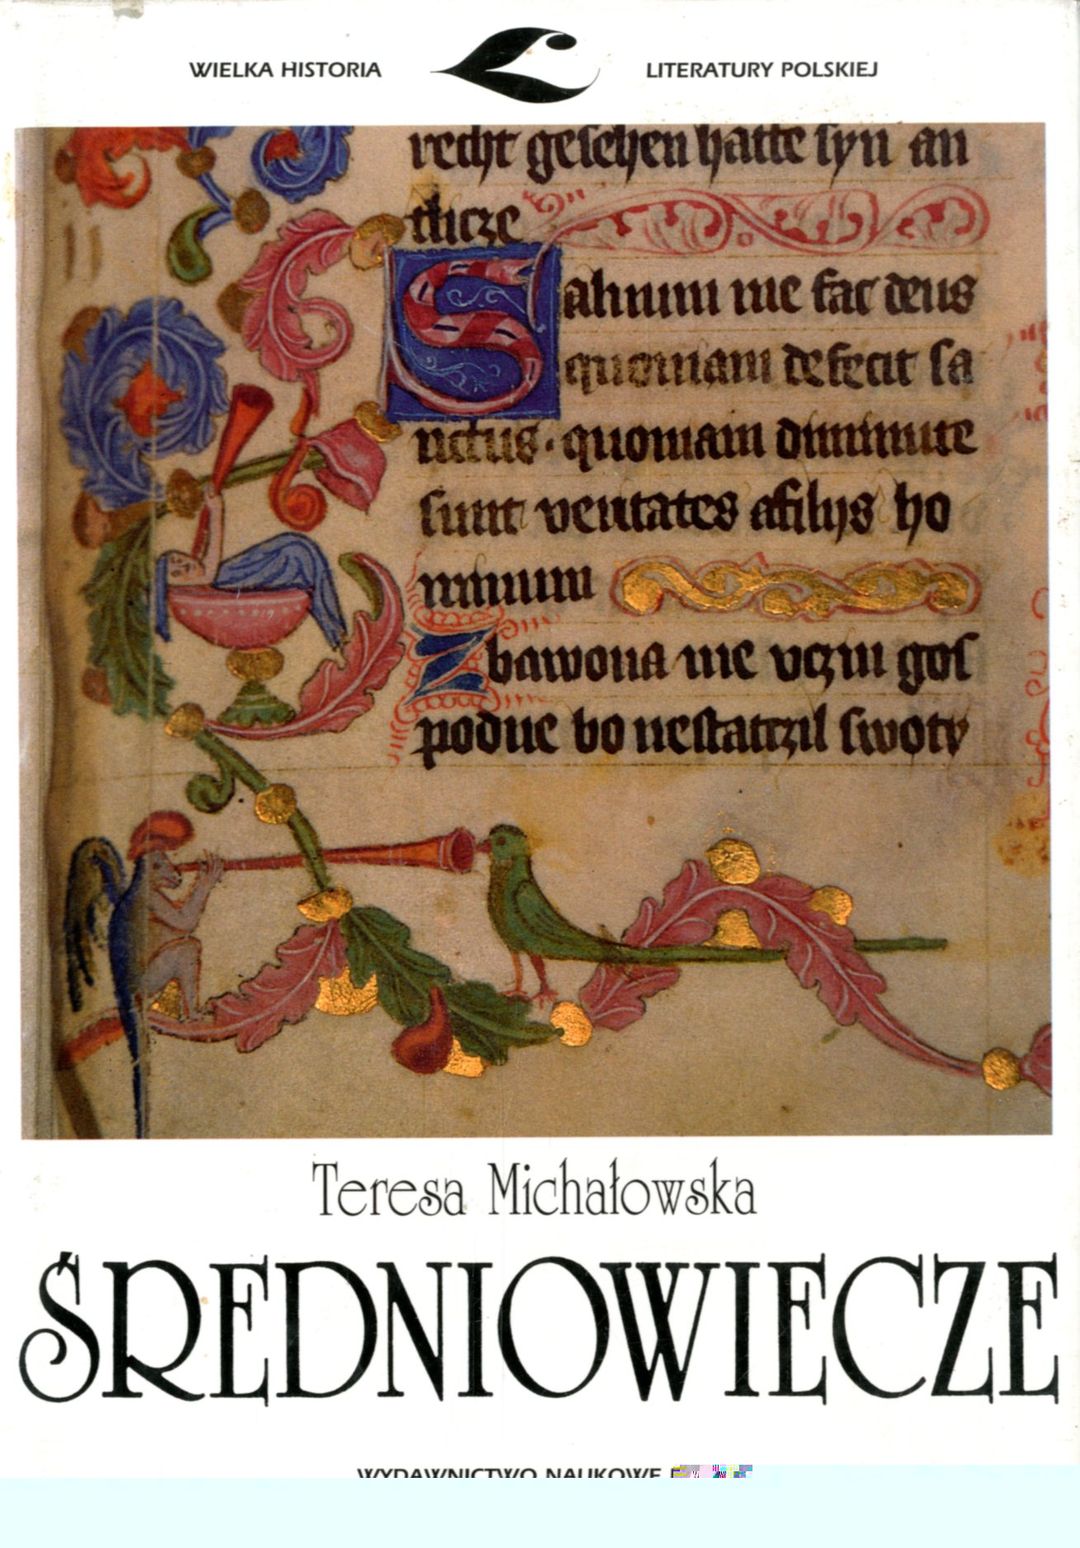 WIELKA HISTORIA LITERATURY POLSKIEJ
recht gesehen hatte syn an
tlicze
Saluum me fac deus
quoniam defecit sa
nctus · quoniam diminute
sunt veritates a filijs ho
minum
Zbawona me vczin gos
podne bo nestatczil swoty
Teresa Michałowska
ŚREDNIOWIECZE
WYDAWNICTWO NAUKOWE